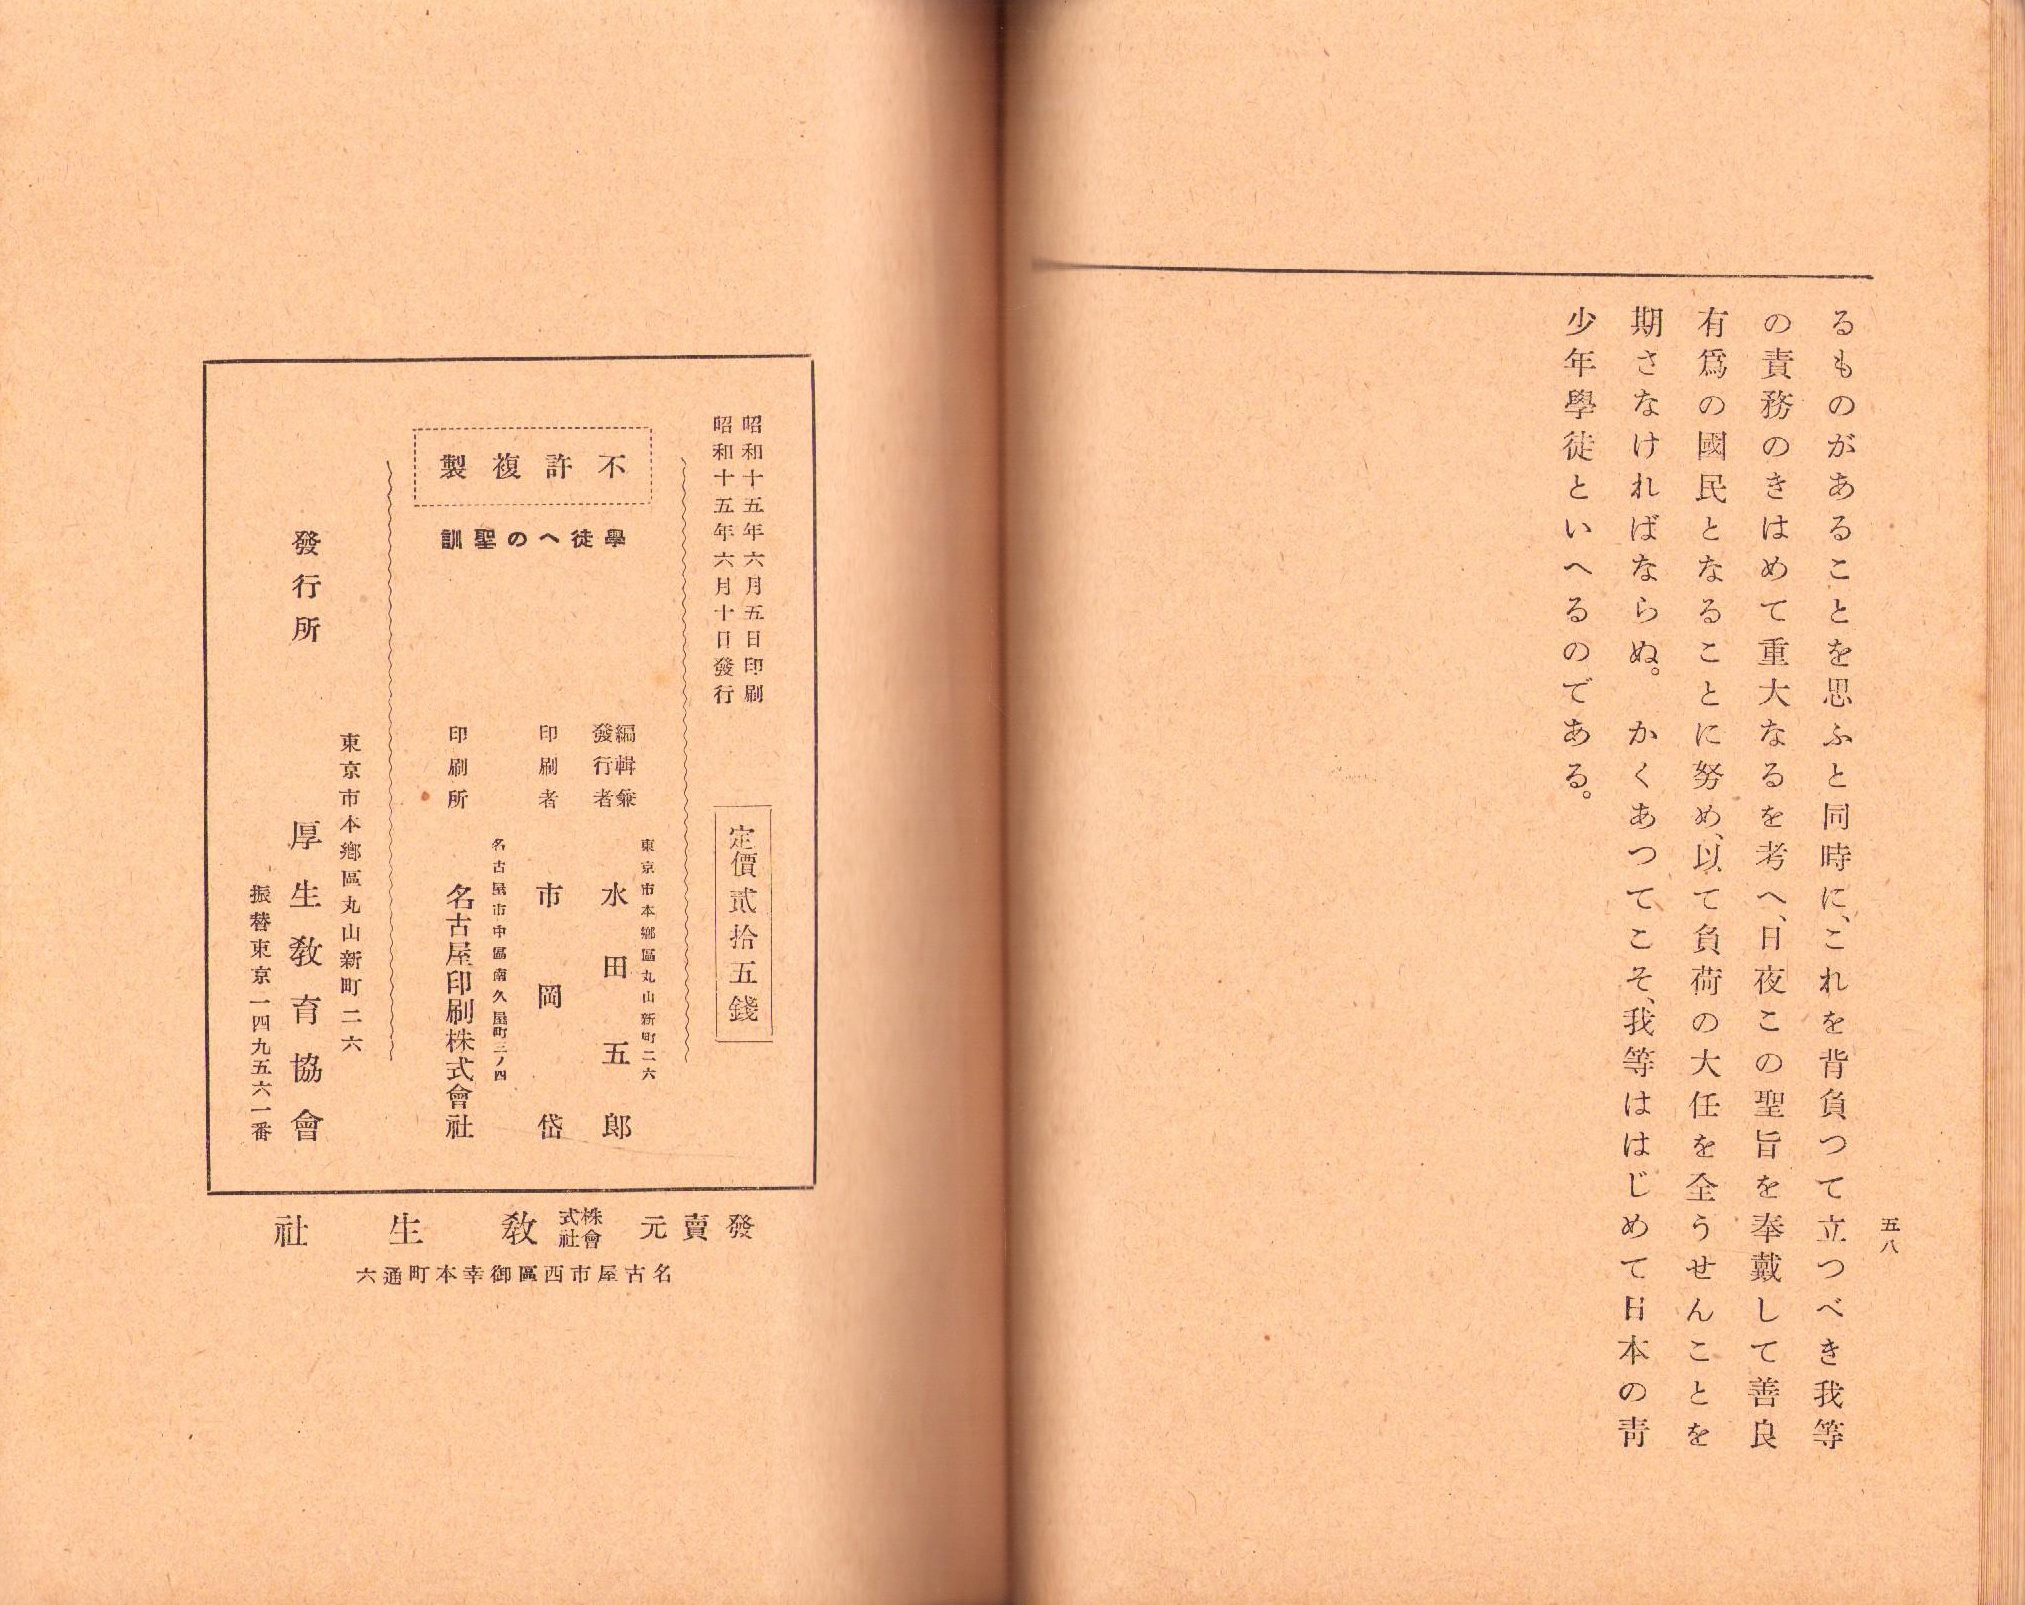 五八
るものがあることを思ふと同時に、これを背負つて立つべき我等
の責務のきはめて重大なるを考へ、日夜この聖旨を奉戴して善良
有爲の國民となることに努め、以て負荷の大任を全うせんことを
期さなければならぬ。かくあつてこそ、我等ははじめて日本の靑
少年學徒といへるのである。
昭和十五年六月五日印刷
昭和十五年六月十日發行
定價貳拾五錢
不許複製
學徒への聖訓
東京市本鄕區丸山新町二六
編輯兼
發行者
水田五郎
印刷者
市岡岱
名古屋市中區南久屋町三ノ四
印刷所
名古屋印刷株式會社
東京市本鄕區丸山新町二六
發行所
厚生敎育協會
振替東京一四九五六一番
發賣元 株式會社 敎生社
名古屋市西區御幸本町通六